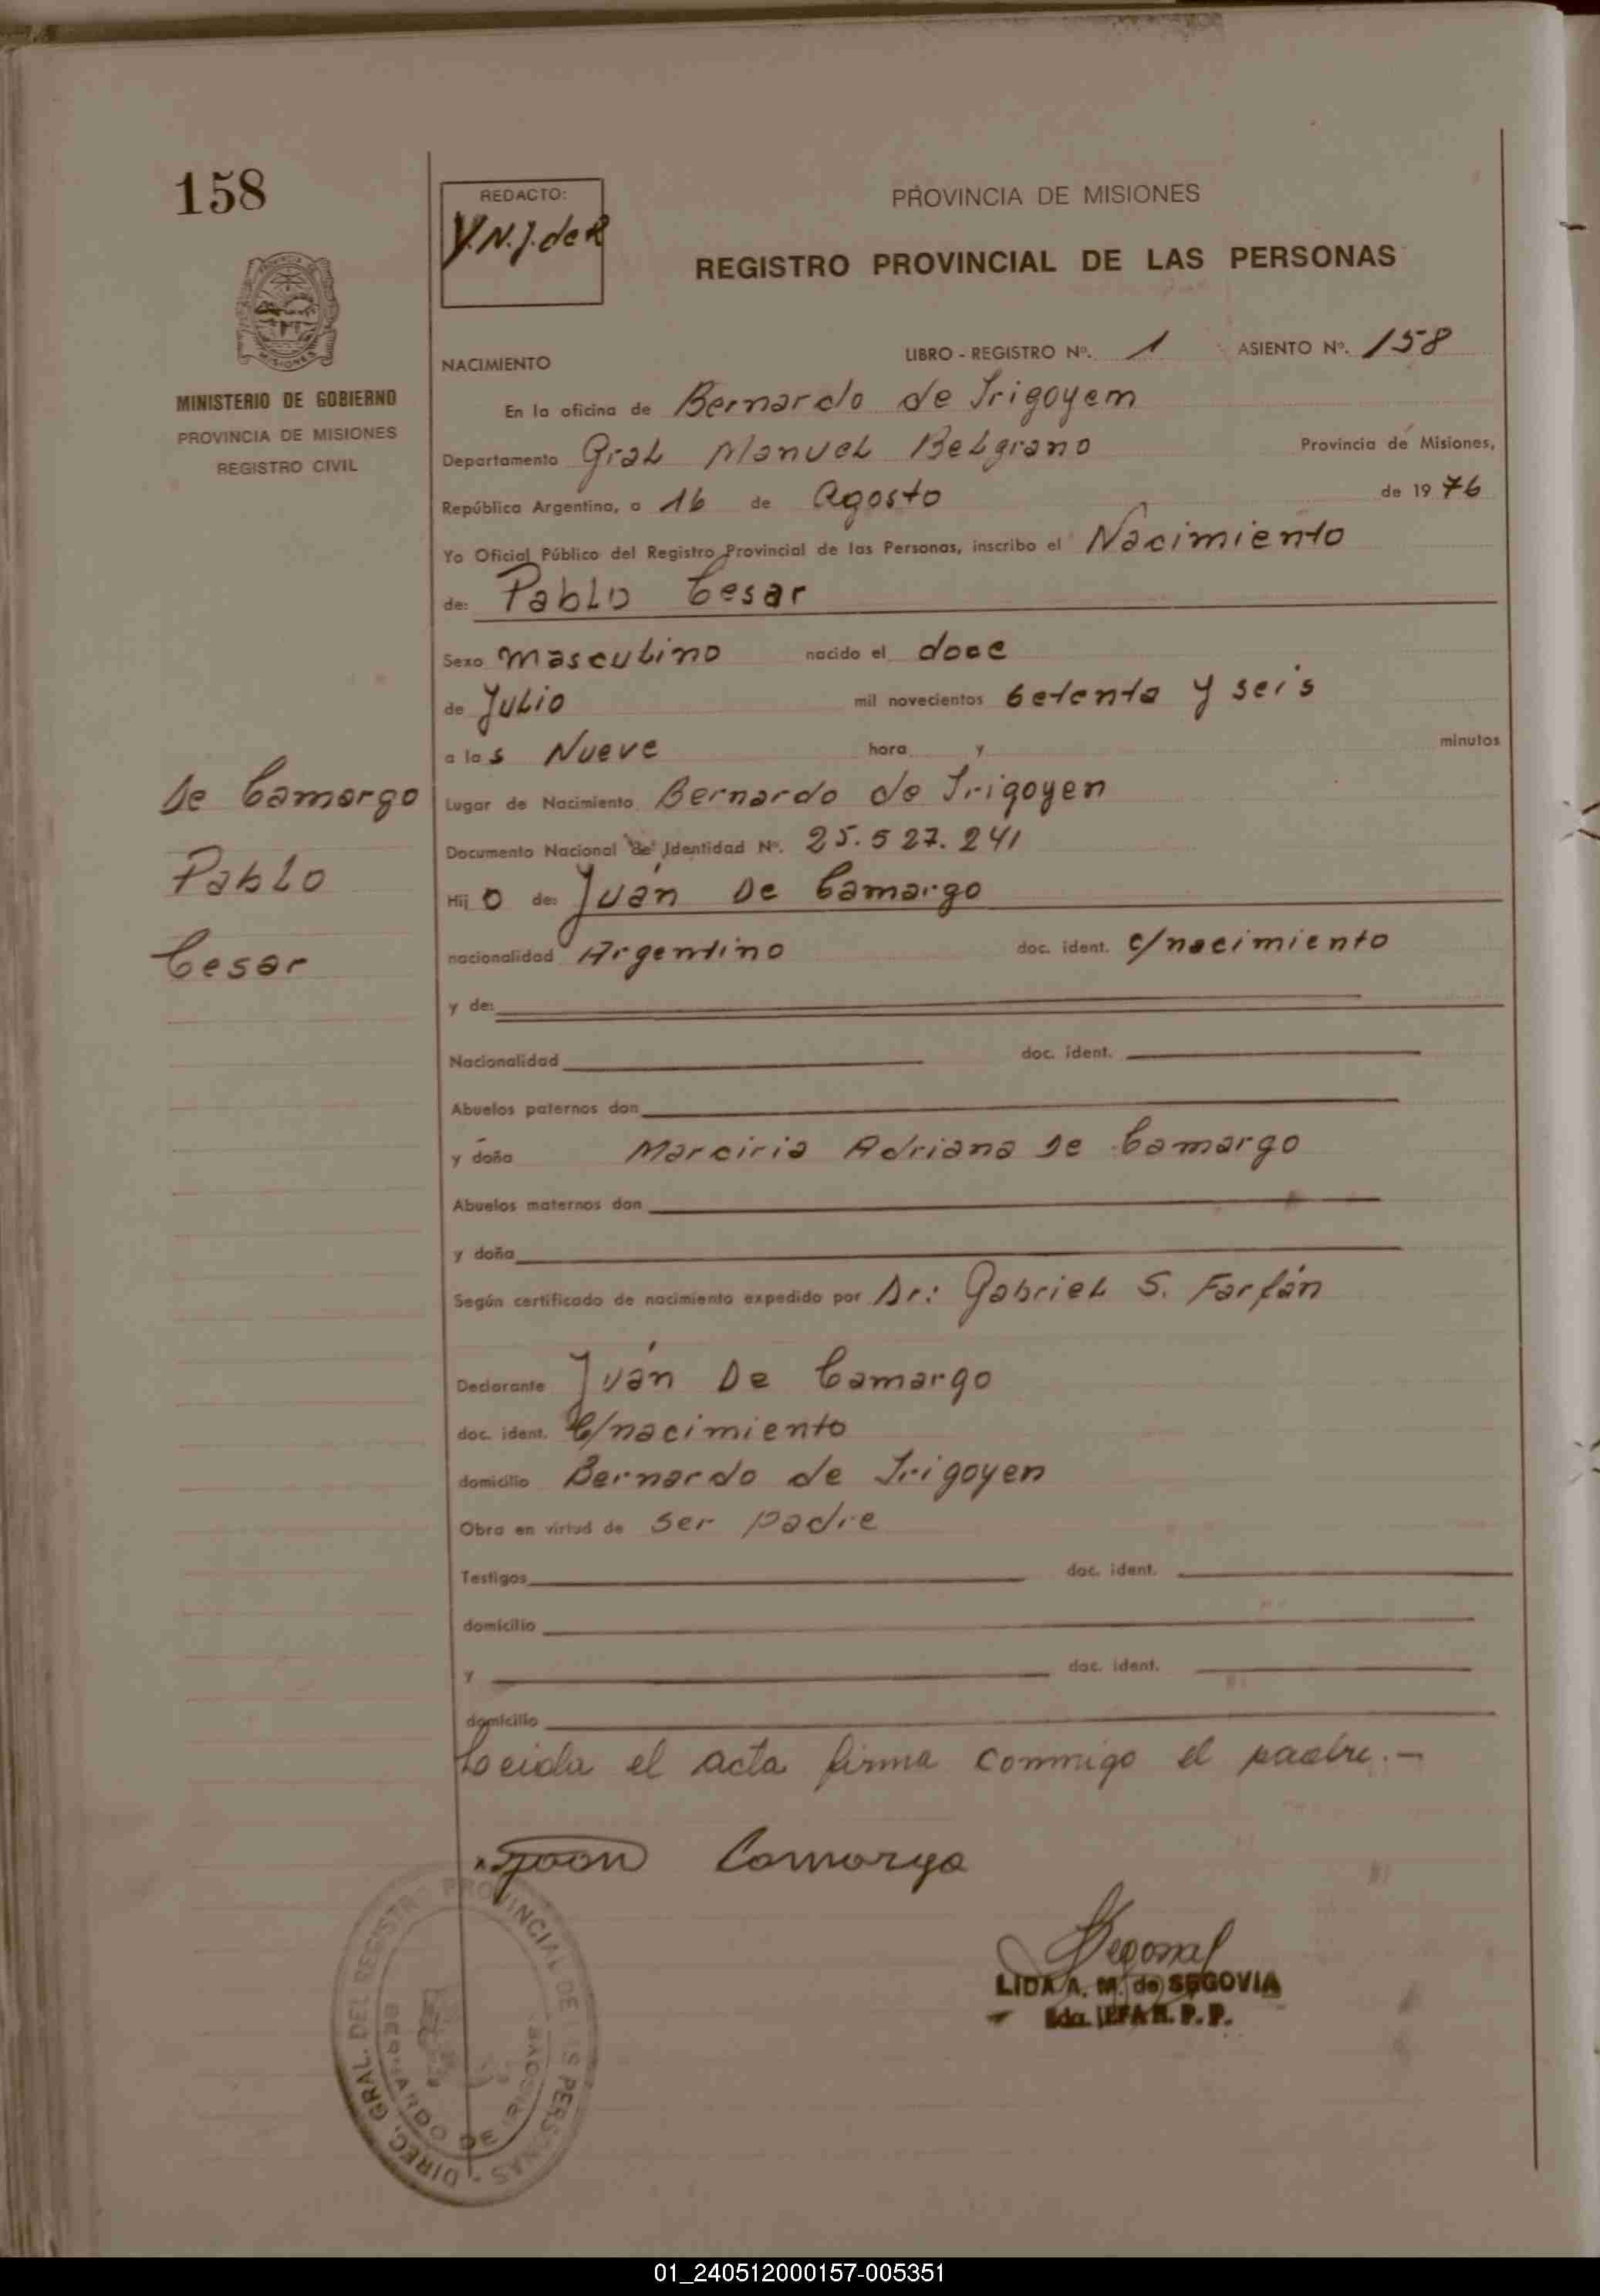 158
REDACTO:
Y.N.J. de R
PROVINCIA DE MISIONES
REGISTRO PROVINCIAL DE LAS PERSONAS
MINISTERIO DE GOBIERNO
PROVINCIA DE MISIONES
REGISTRO CIVIL
NACIMIENTO LIBRO - REGISTRO Nº. 1 ASIENTO Nº. 158
En la oficina de Bernardo de Irigoyem
Departamento Gral Manuel Belgrano Provincia de Misiones,
República Argentina, a 16 de Agosto de 1976
Yo Oficial Público del Registro Provincial de las Personas, inscribo el Nacimiento
de: Pablo Cesar
Sexo masculino nacido el doce
de Julio mil novecientos setenta y seis
a las Nueve hora y minutos
Lugar de Nacimiento Bernardo de Irigoyen
Documento Nacional de Identidad Nº. 25.527.241
De Camargo
Pablo
Cesar
Hijo de: Juán De Camargo
nacionalidad Argentino doc. ident. c/nacimiento
y de:
Nacionalidad doc. ident.
Abuelos paternos don
y doña Marciria Adriana De Camargo
Abuelos maternos don
y doña
Según certificado de nacimiento expedido por Dr: Gabriel S. Farfán
Declarante Juán De Camargo
doc. ident. C/nacimiento
domicilio Bernardo de Irigoyen
Obra en virtud de ser padre
Testigos doc. ident.
domicilio
y doc. ident.
domicilio
Leida el acta firma conmigo el padre.-
Camargo
LIDA A. M. de SEGOVIA
JEFA R. P. P.
DIREC. GRAL. DEL REGISTRO PROVINCIAL DE LAS PERSONAS
BERNARDO DE IRIGOYEN
01_240512000157-005351